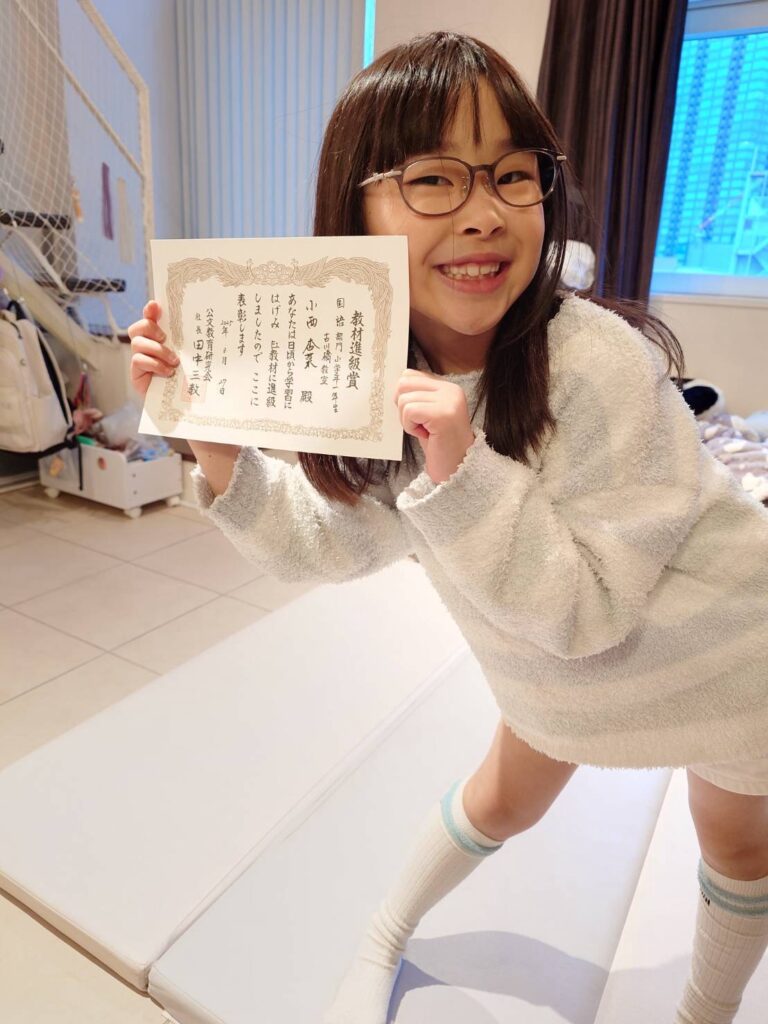 教材進級賞
国語部門 小学一年生
古川橋教室
小西 殿
あなたは日頃から学習に
はげみ E教材に進級
しましたので ここに
表彰します
2025年 月 27日
公文教育研究会
社長 田中三教